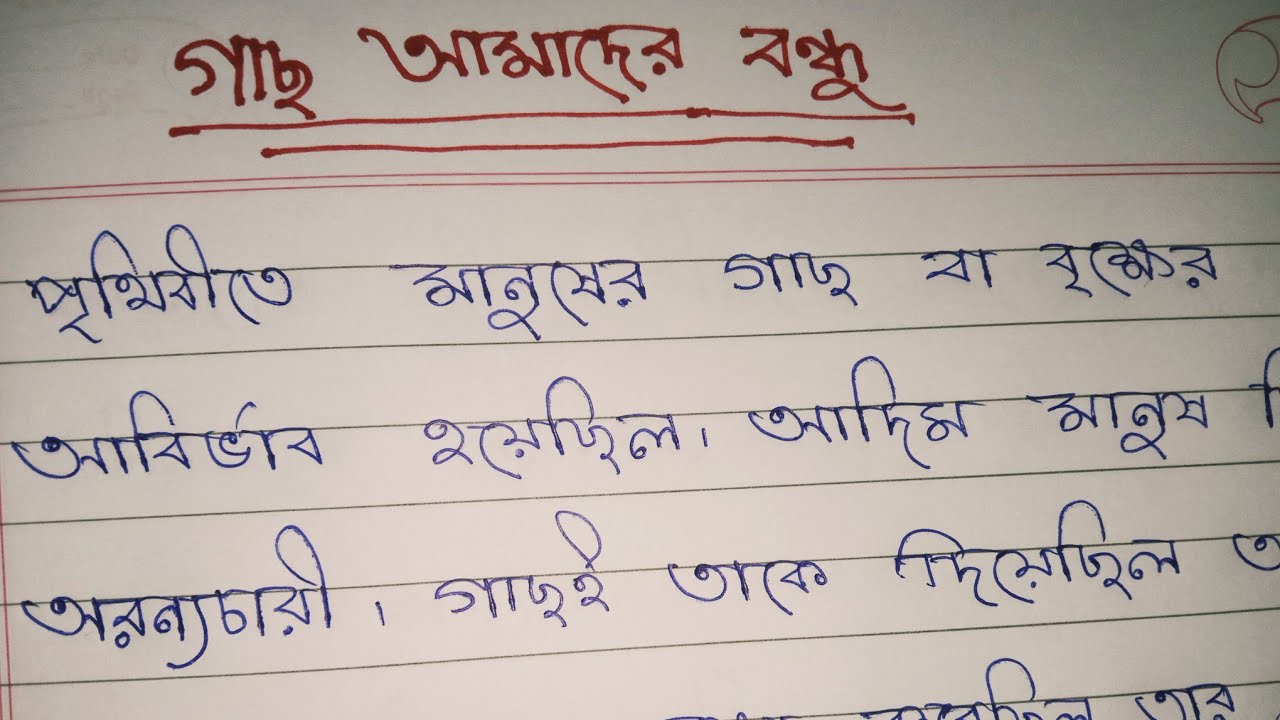 গাছ আমাদের বন্ধু
পৃথিবীতে মানুষের গাছ বা বৃক্ষের
আবির্ভাব হয়েছিল। আদিম মানুষ
অরন্যচারী। গাছই তাকে দিয়েছিল
তার